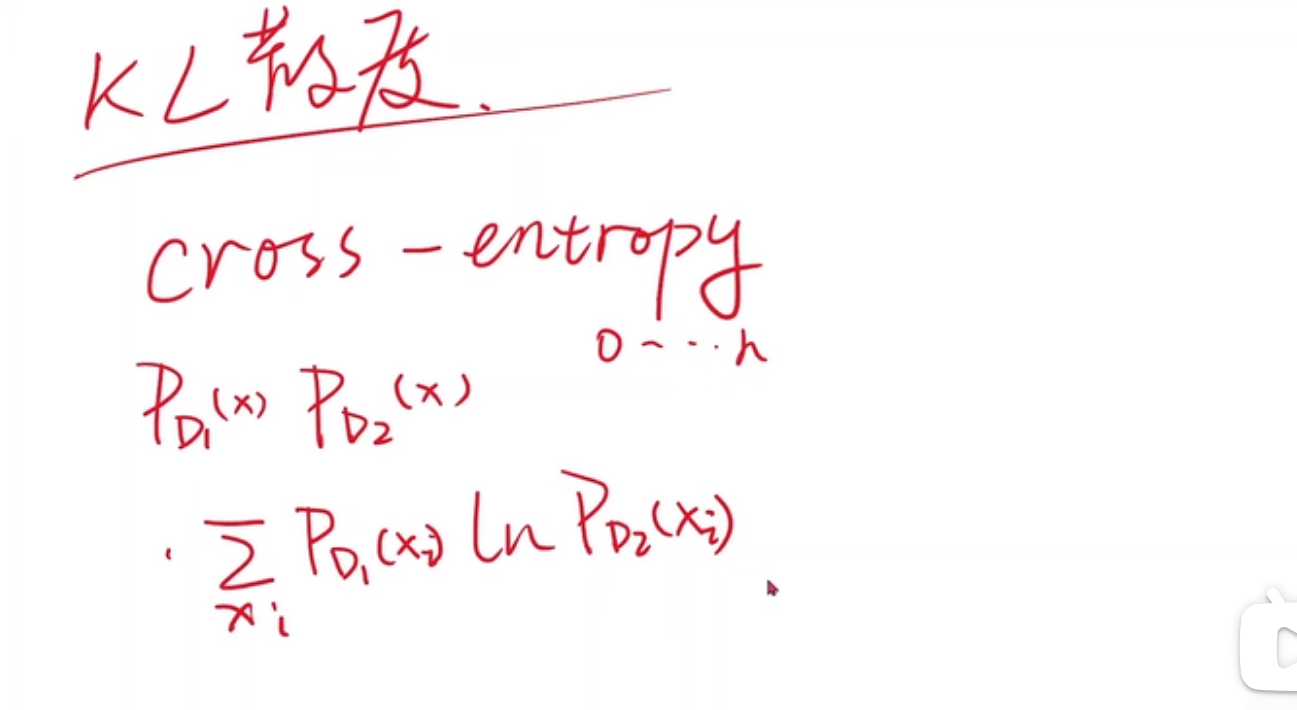 KL散度.
cross-entropy
0~...n
P_{D_1}(x) P_{D_2}(x)
\sum_{x_i} P_{D_1}(x_i) ln P_{D_2}(x_i)